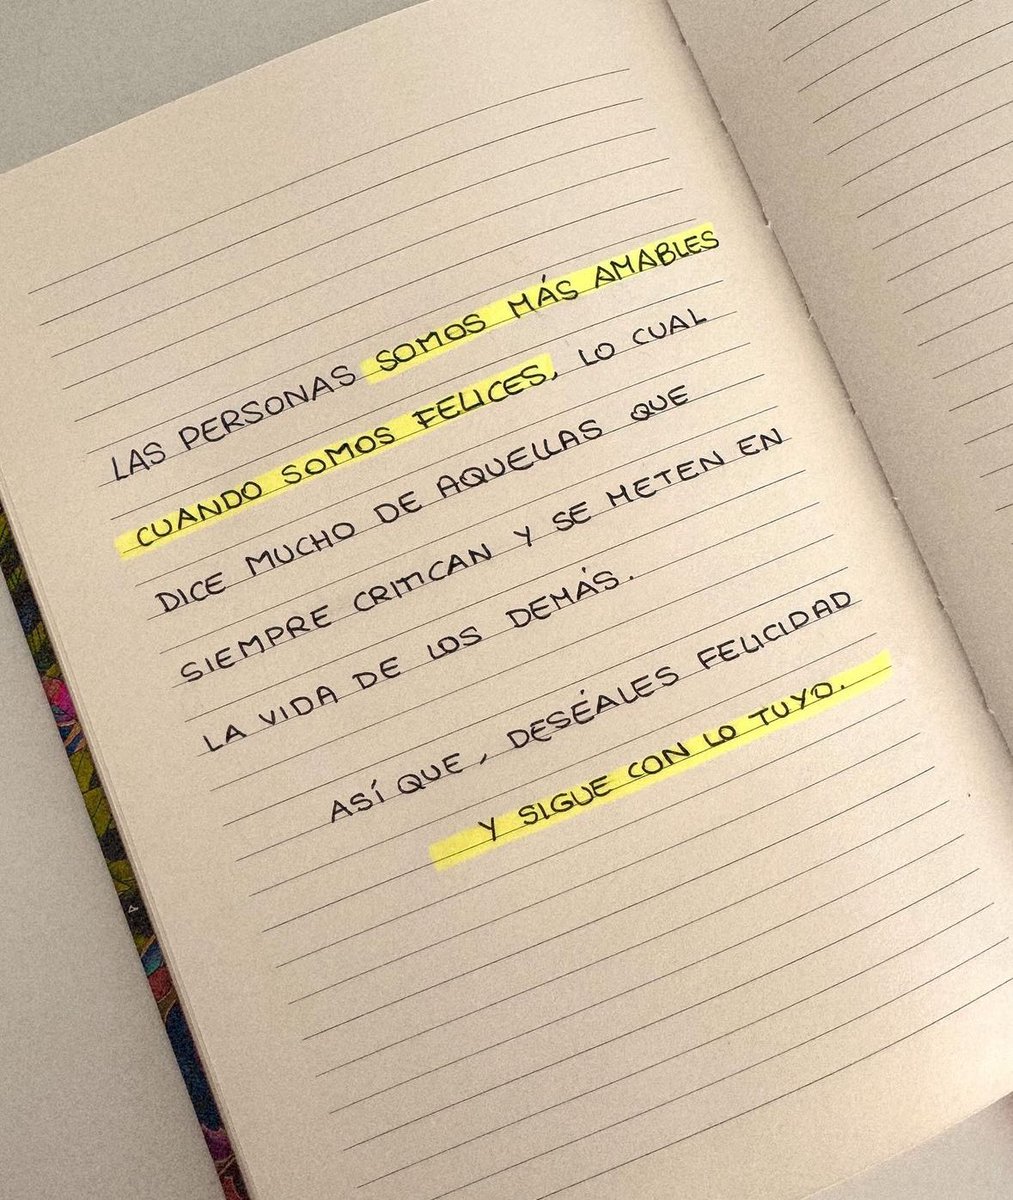 LAS PERSONAS SOMOS MÁS AMABLES
CUANDO SOMOS FELICES, LO CUAL
DICE MUCHO DE AQUELLAS QUE
SIEMPRE CRITICAN Y SE METEN EN
LA VIDA DE LOS DEMÁS.
ASÍ QUE, DESÉALES FELICIDAD
Y SIGUE CON LO TUYO.